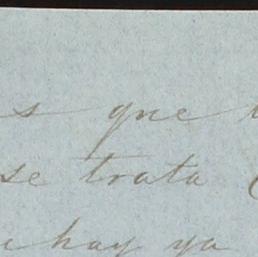 s que
se trata
hay ya